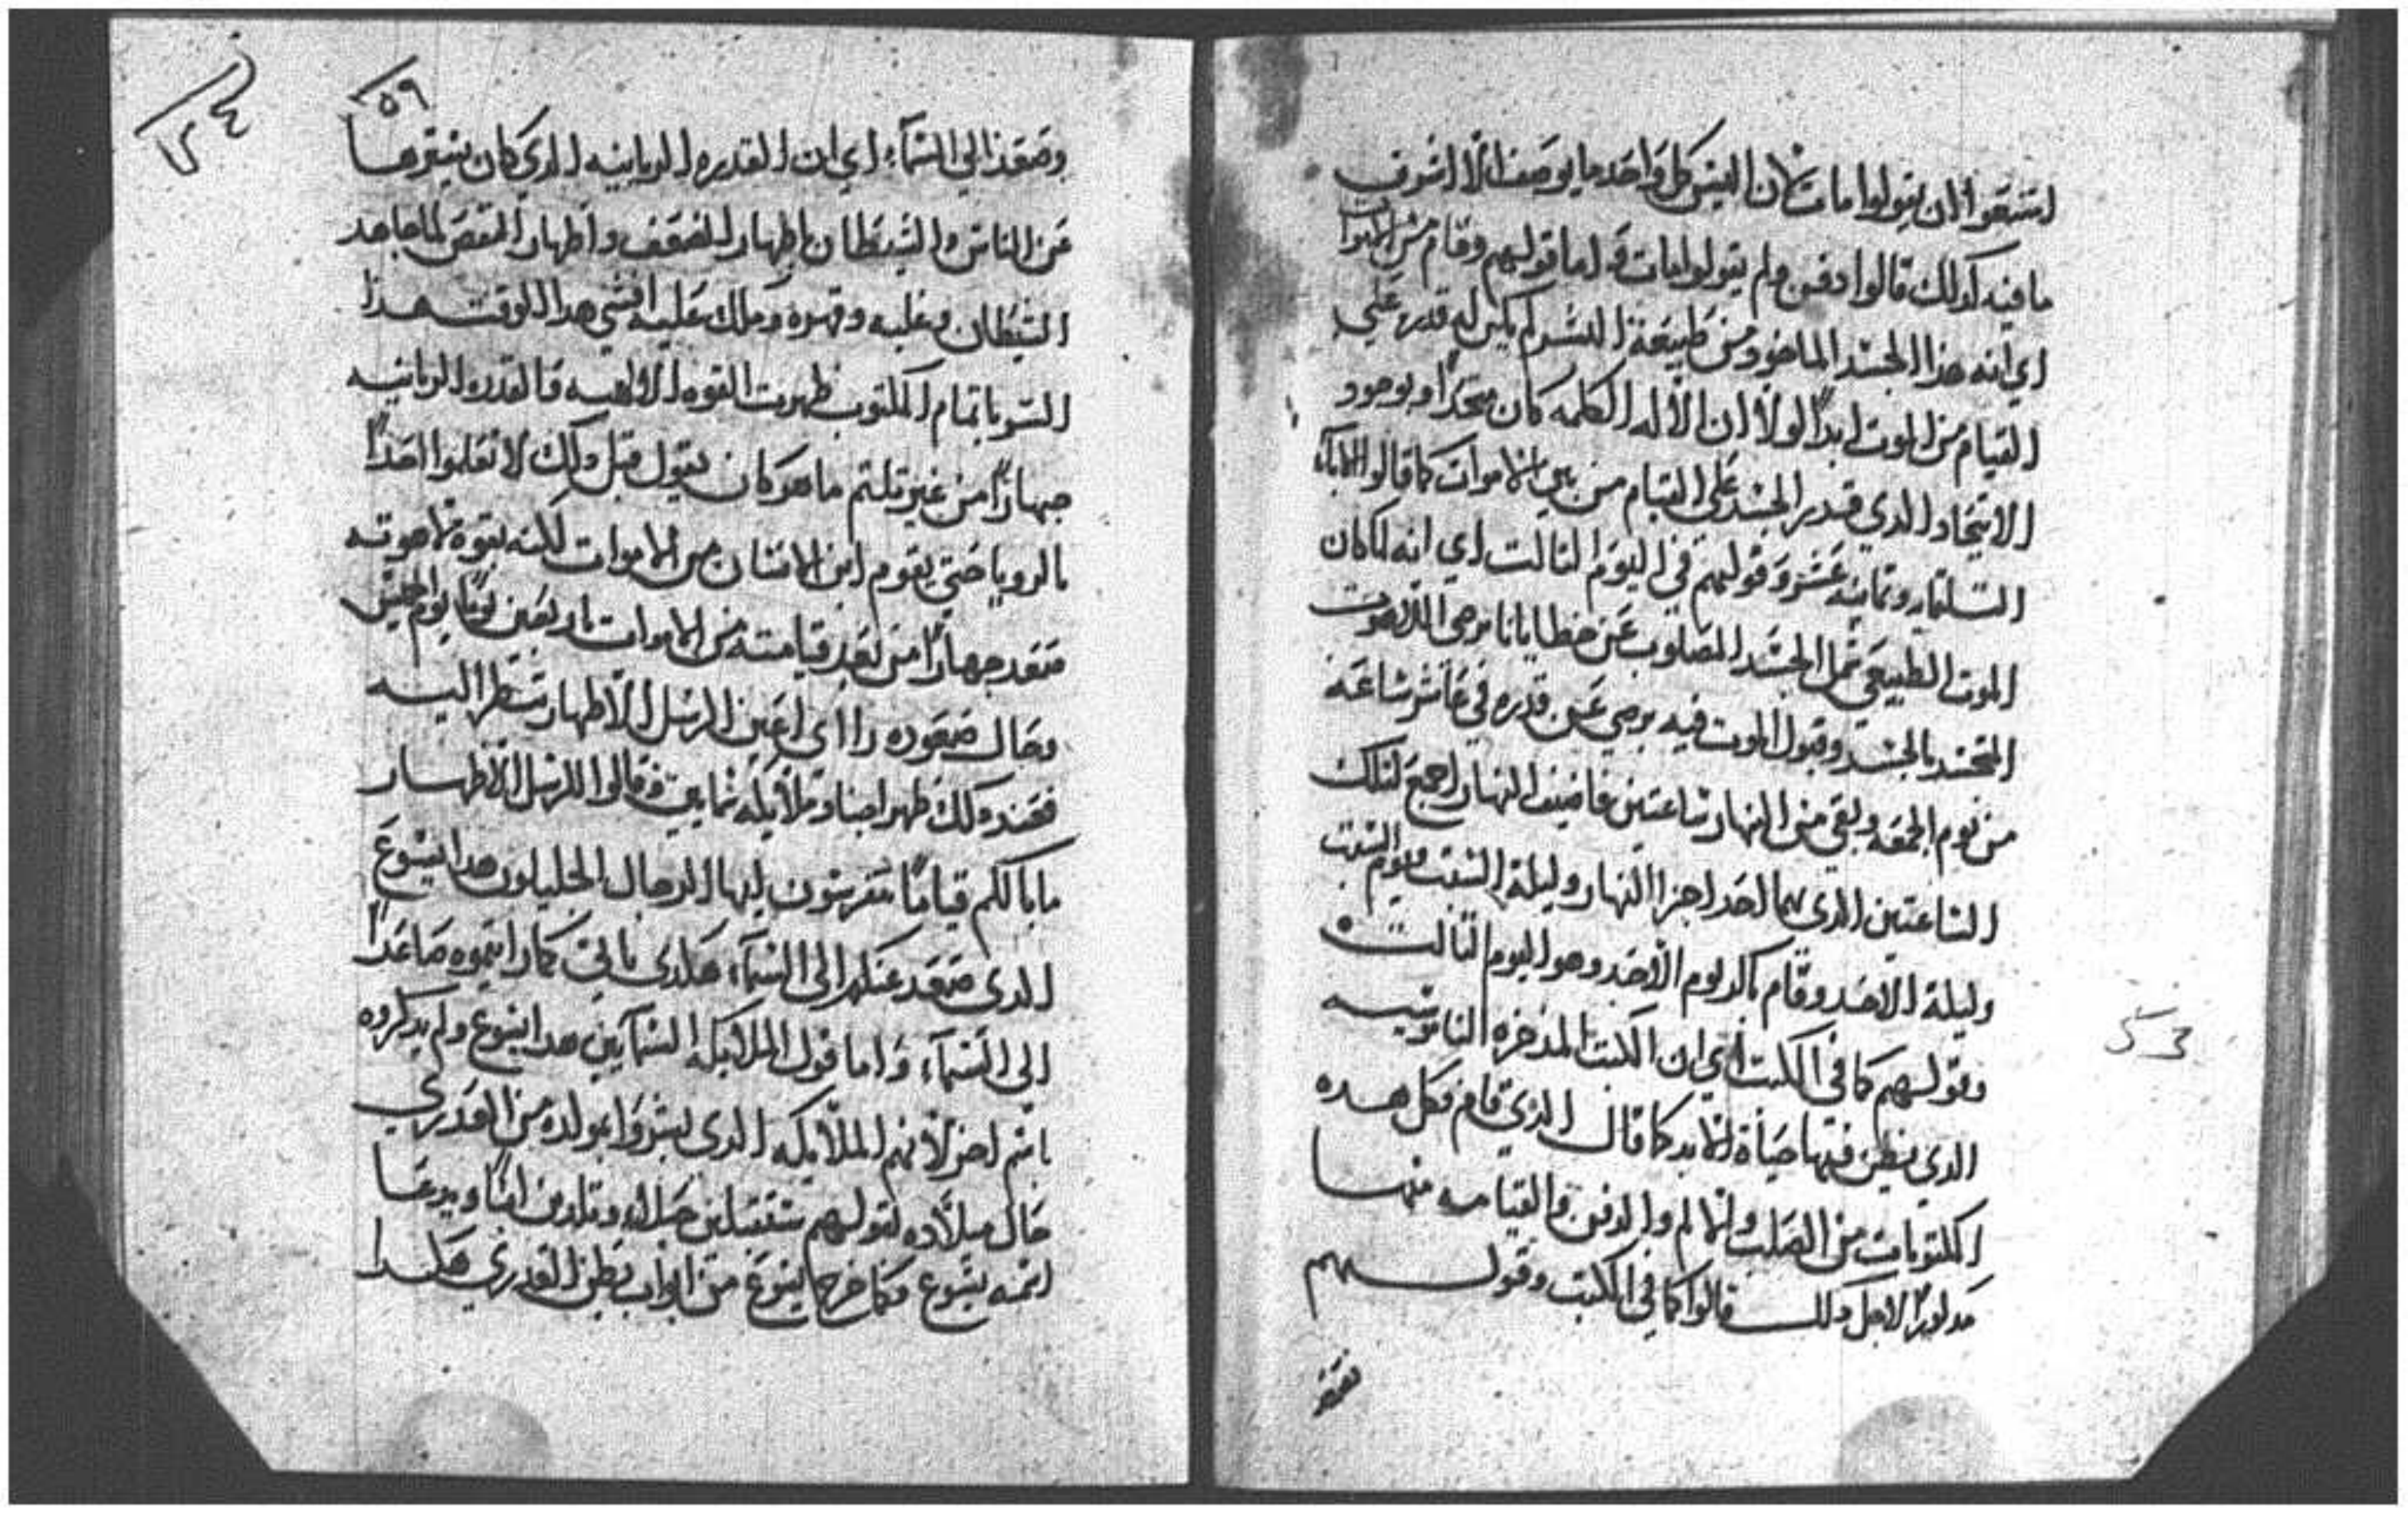 استبعوا ان يقولوا مات لان ليس كل واحد ما يوصف الا اشرف
ما فيه كدلك قالوا دفن ولم يقولوا مات و اما قولهم وقام من الاموات
اي انه هذا الجسد الماخود من طبيعة البشر لم يكن له قدره علي
القيام من الموت ابدا لولا ان الاله الكلمه كان متحدا به بوجود
الاتحاد الدي قدر الجسد علي القيام من بين الاموات كما قالوا الاباء
التلتمايه وتمانيه عشر وقولهم في اليوم التالت اي انه لما كان
الموت الطبيعي تحمل الجسد المصلوب عن خطايانا برضي اللاهوت
المتحد بالجسد وقبول الموت فيه برضي عن قدره في عاشر ساعه
من يوم الجمعه وبقي من النهار ساعتين فاضيف النهار اجمع لتلك
الساعتين الدي هما احد اجزا النهار وليلة السبت ويوم السبت
وليلة الاحد وقام باكر يوم الاحد وهو اليوم التالت
وقولهم كما في الكتب اي ان الكتب المدخره الناموسيه
الدي نظن فيها حياة الابد كما قال الذي قام فكل هده
المكتوبات من الصلب والالم والدفن والقيامه فيها
مدكورا لاجل دلك قالوا كما في الكتب وقولهم
وصعد
53
٥٤
٥٩
وصعد الي السماء اي ان القدره الربانيه الدي كان يسترها
عن الناس والشيطان باظهار الضعف واظهار النقص لما جاهد
الشيطان وغلبه وقهره وملك عليه افشي هدا الوقت هدا
السر باتمام المكتوب ظهرت القوه الالاهيه والقدره الربانيه
جهارا من غير تلتم ما هو كان يقول قبل دلك لا تعلموا احدا
بالرويا حتي يقوم ابن الانسان من الاموات لكنه بقوة لاهوته
صعد جهارا من بعد قيامته من الاموات باربعين يوما يوم الخميس
وحال صعوده رااي اعين الرسل الاطهار تنظر اليه
فعند دلك ظهر اجناد ملايكه سماييين وقالوا للرسل الاطهار
ما بالكم قياما متفرسون ايها الرجال الجليليون هدا ايسوع
الدي صعد عنكم الي السماء هكدي ياتي كما رايتموه صاعدا
الي السماء واما قول الملايكه السماييين هدا ايسوع ولم يدكروه
باسم اخر لانهم الملايكه الدي بشروا بمولده من العدري
حال ميلاده لقولهم ستقبلين حبلا وتلدين ابنا ويدعا
اسمه يسوع وكما خرج ايسوع من ابواب بطن العدري هكدا